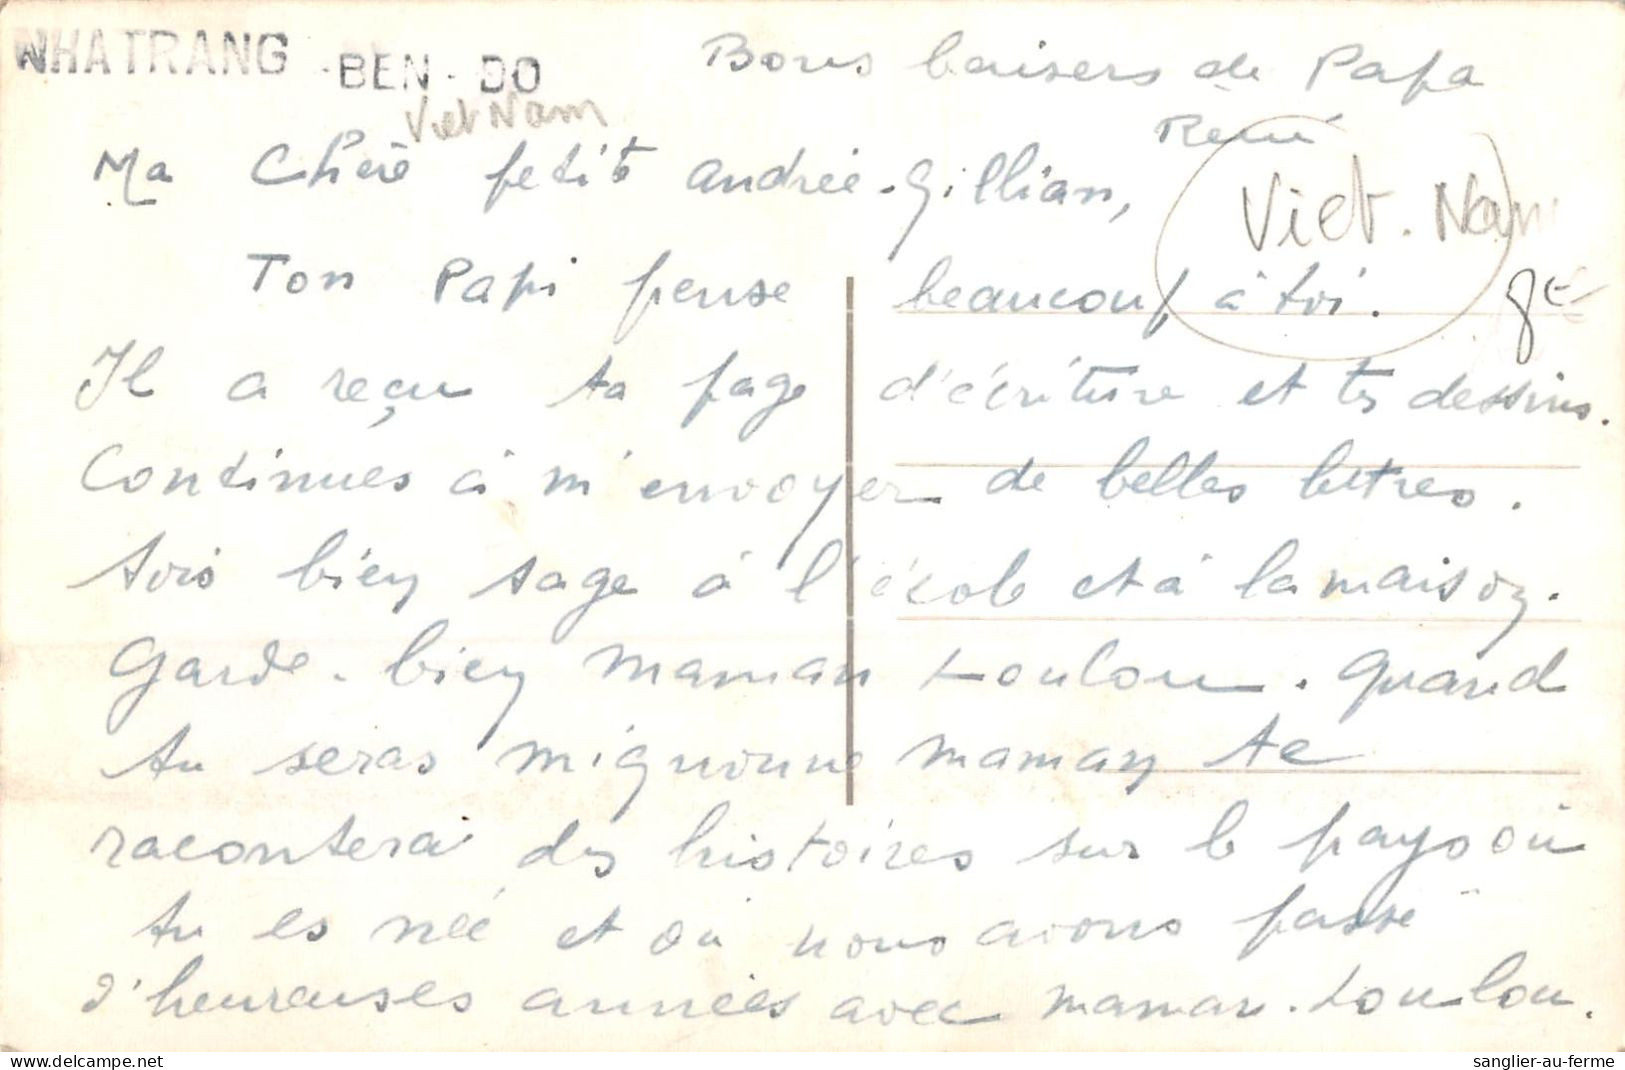 NHATRANG - BEN - DO
Viet Nam
Bons baisers de Papa
René
Viet. Nam
8€
Ma Chère petite andrée-gillian,
Ton Papi pense beaucoup à toi.
Il a reçu ta page d'écriture et tes dessins.
Continues à m'envoyer de belles lettres.
Sois bien sage à l'école et à la maison.
Garde - bien maman Loulou. Quand
tu seras mignonne maman te
racontera des histoires sur le pays où
tu es née et où nous avons passé
d'heureuses années avec maman. Loulou.
sanglier-au-ferme